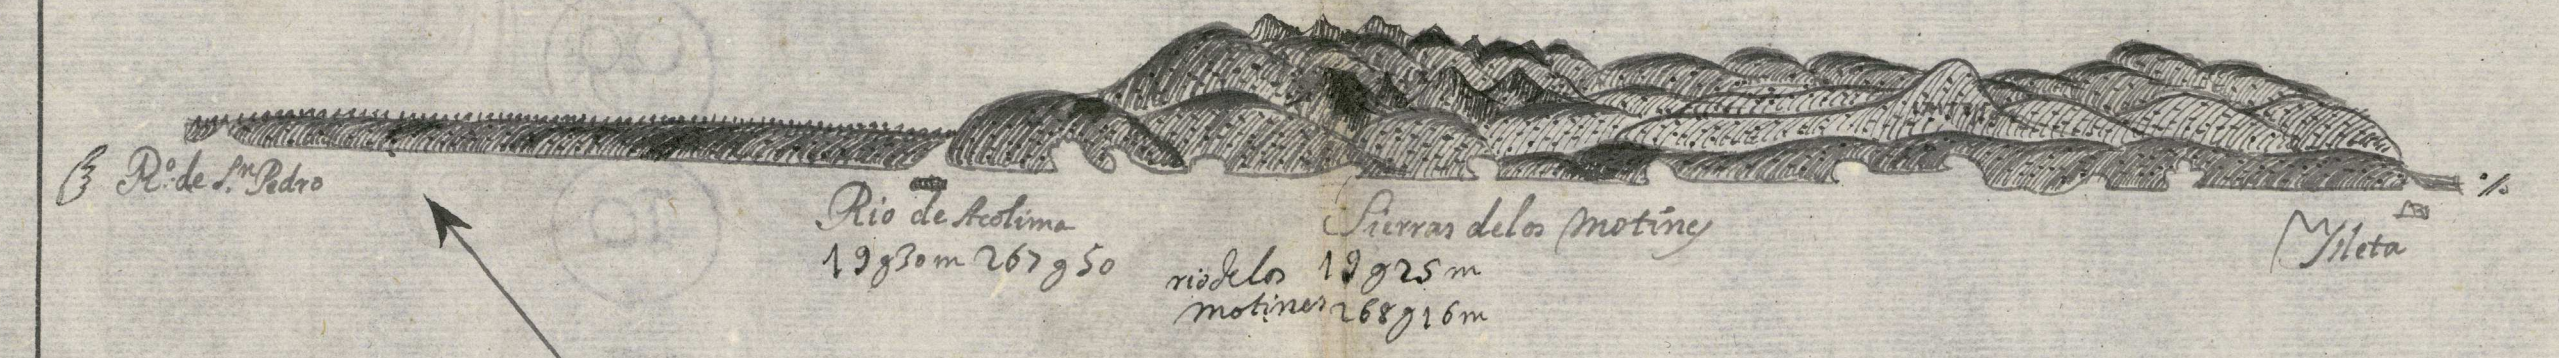 R.º de S.ⁿ Pedro
Rio de Acolima
19 g 30 m 267 g 50
Sierras delos Motines
rio de los
motines
19 g 25 m
268 g 16 m
Ysleta